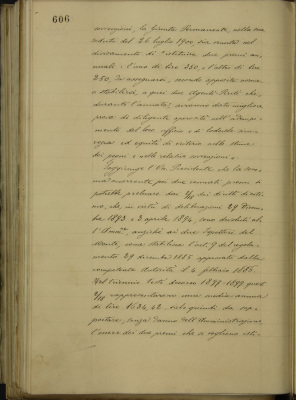 606
sovvenzioni, la Giunta Permanente, nella sua
seduta del 26 luglio 1900 era venuta nel
divisamento di istituire due premi an-
nuali: l'uno di lire 350, e l'altro di lire
250, da assegnarsi, secondo apposite norme
a stabilirsi, a quei due Agenti Periti che,
durante l'annata, avranno data migliore
prova di diligente operosità nell'adempi-
mento del loro ufficio e di lodevole
ed equità di criterio nella stima
dei pegni e nelle relative sovvenzioni.
Soggiunge il V.e Presidente che la som-
ma occorrente per due cennati premi si
potrebbe prelevare dai diritti di asta
che, in virtù di deliberazioni 29 Novem-
bre 1893 e 3 aprile 1894, sono devoluti al-
l'Amm.ne, anzichè ai due Ispettori del
Monte, come stabiliva l'art. 9 del regola-
mento 29 dicembre 1885 approvato dalla
competente Autorità il 4 febbraio 1886.
Nel triennio testè decorso 1897-1899 quei
rappresentarono una media annua
di lire 1634,42, ed è quindi da
senza danno dell'Amministrazione,
l'onere dei due premi che si vogliono